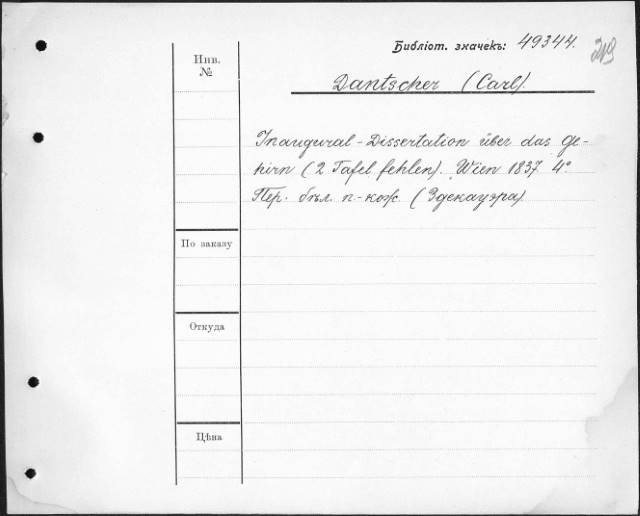 Библіот. значекъ: 49344.
319
Инв.
№
Dantscher (Carl).
Inaugural-Dissertation über das Ge-
hirn (2 Tafel fehlen). Wien 1837. 4°.
Пер. бѣл. п-кож. (Эдекауэра)
По заказу
Откуда
Цѣна